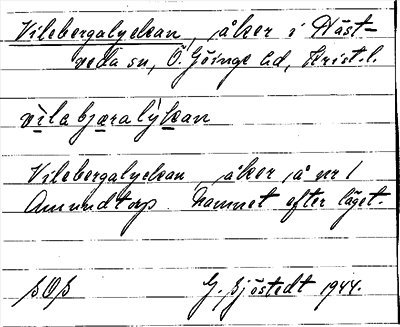 Vilebergalyckan, åker i Häst-
veda sn, Ö. Göinge hd, Krist. l.
vìlabjæralỳkan
Vilebergalyckan, åker å nr 1
Amundtorp. Namnet efter läget.
G. Sjöstedt 1944.